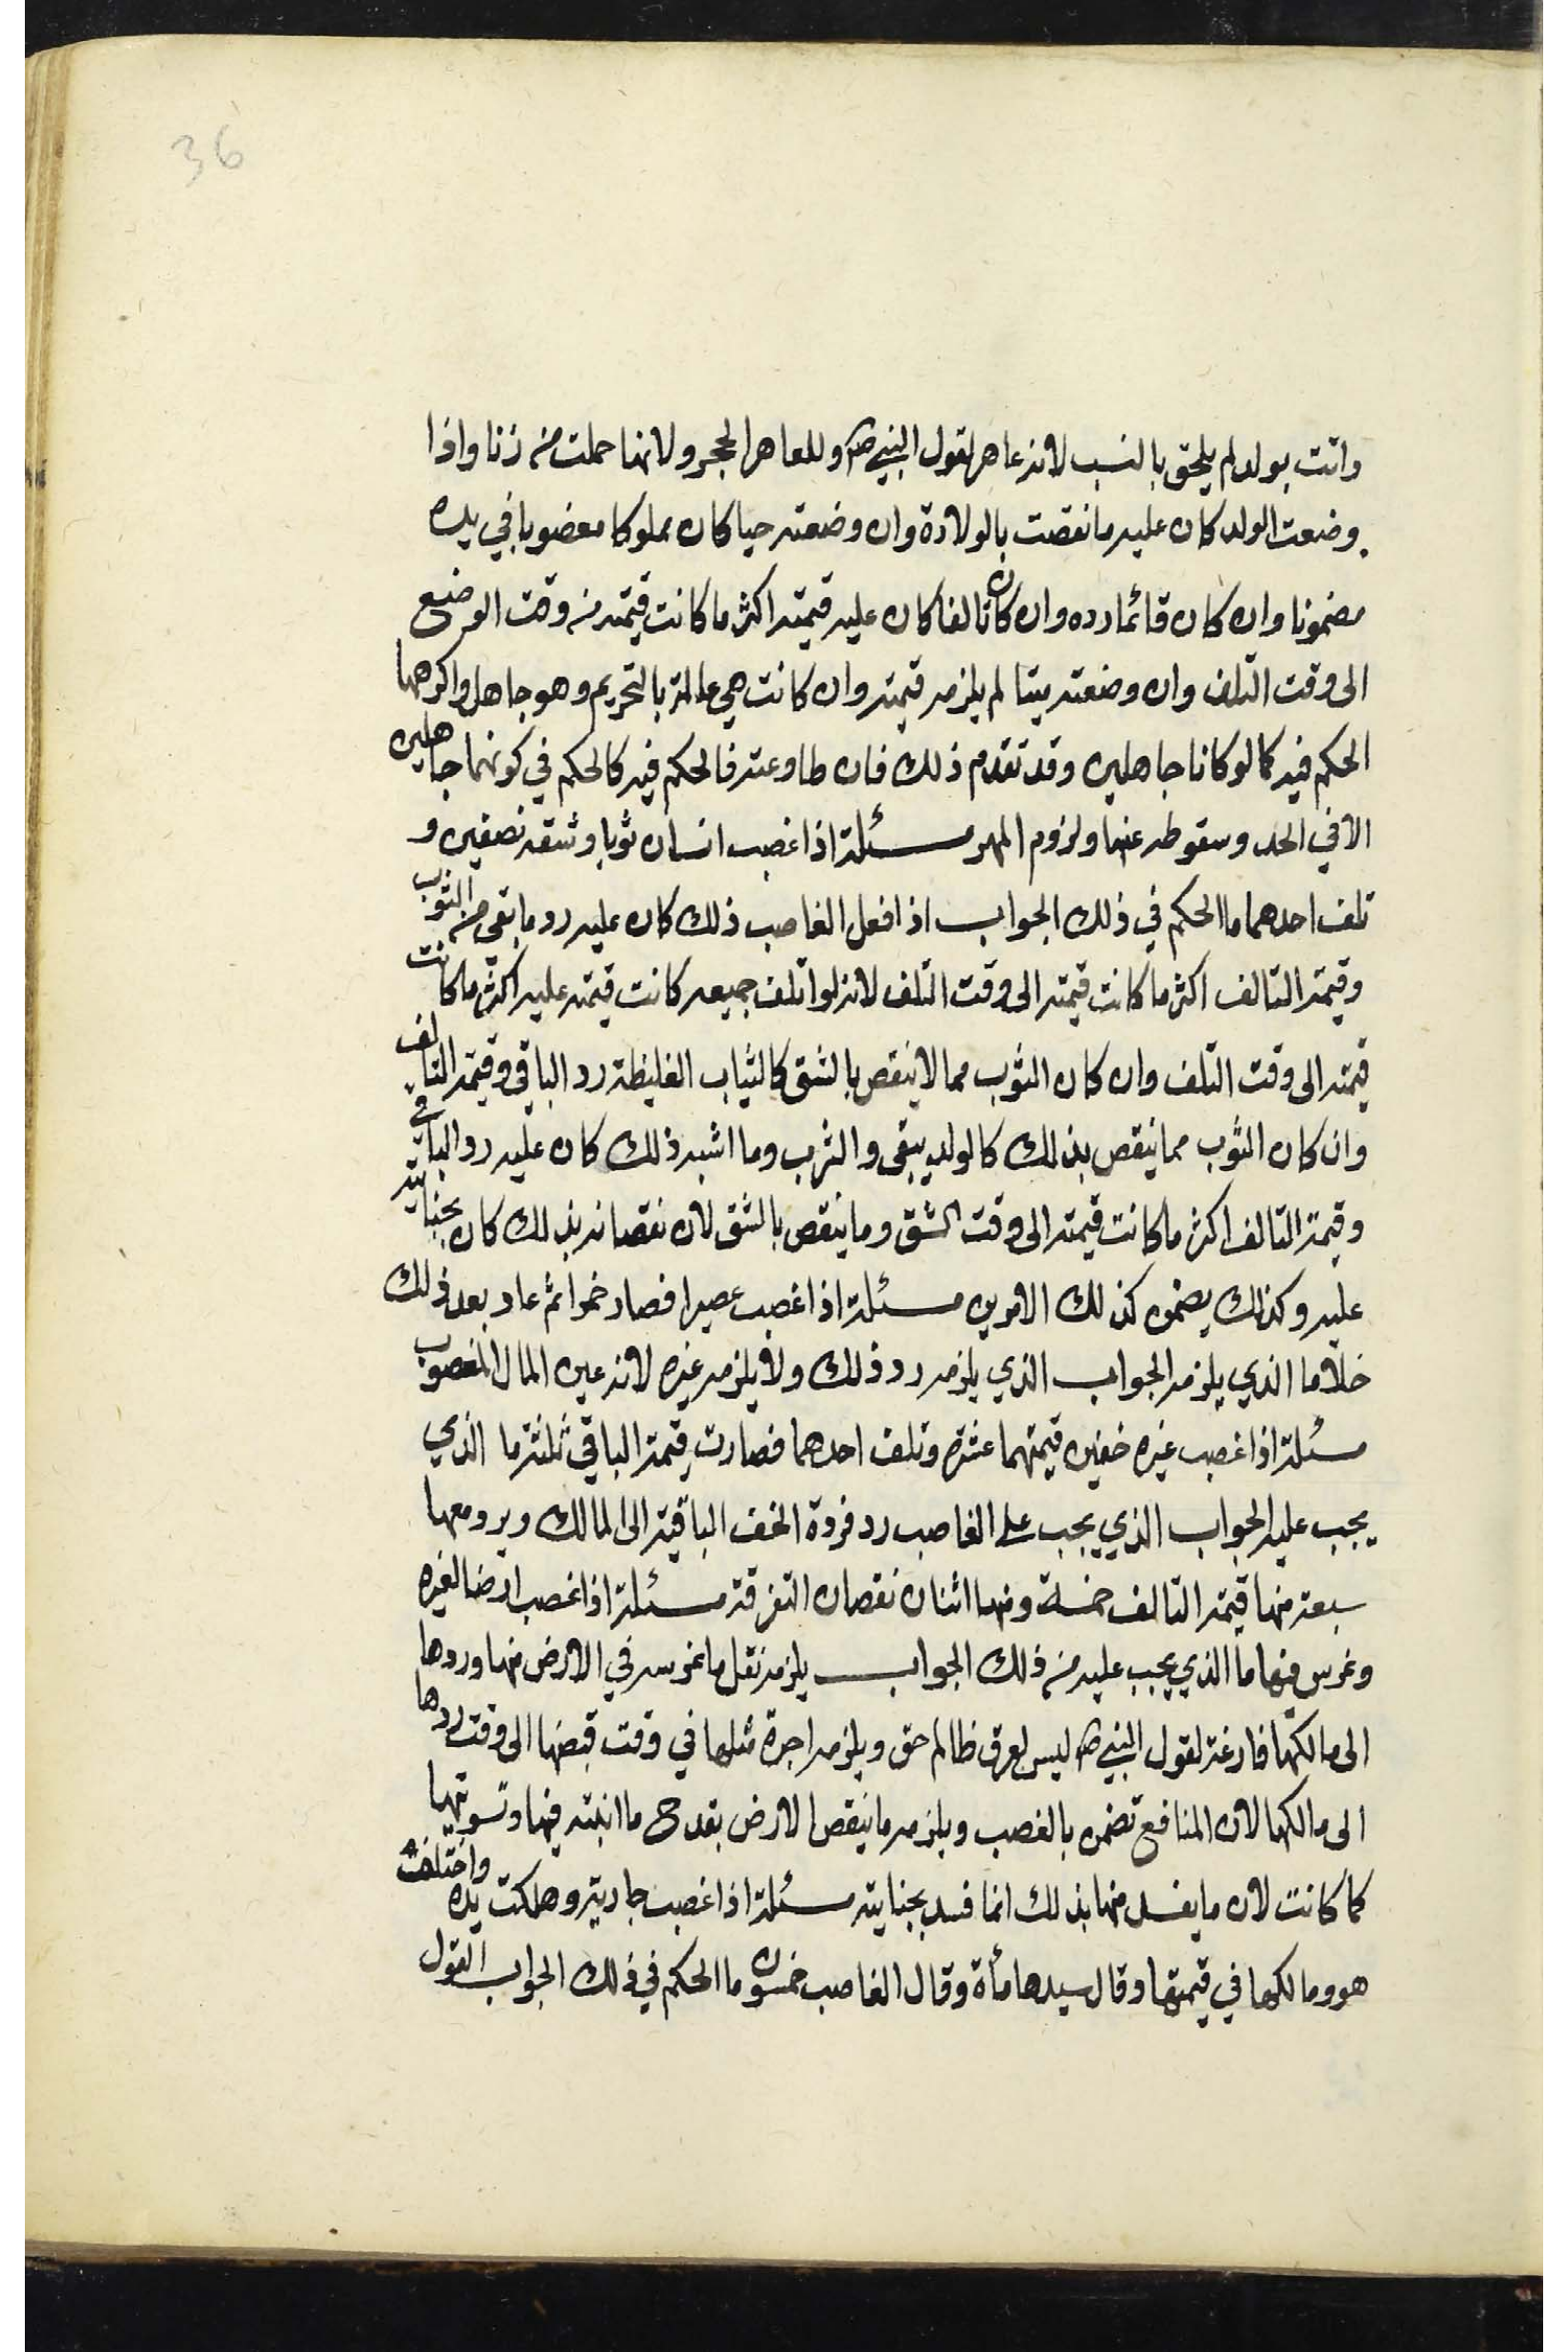 36
واتت بولد لم يلحق بالنسب لانه عاهر لقول النبي ص وللعاهر الحجر ولانها حملت من زنا واذا
وضعت الولد كان عليه ما نقصت بالولادة وان وضعته حيا كان مملوكا مغضوبا في يده
مضمونا وان كان قائما رده وان كان تالفا كان عليه قيمته اكثر ما كانت قيمته من وقت الوضع
الى وقت التلف وان وضعته ميتا لم يلزمه قيمته وان كانت هي عالمة بالتحريم وهو جاهل واكرهها
الحكم فيه كما لو كانا جاهلين وقد تقدم ذلك فان طاوعته فالحكم فيه كالحكم في كونهما جاهلين
الا في الحد وسقوطه عنها ولزوم المهر مسئلة اذا غصب انسان ثوبا وشقه نصفين و
تلف احدهما ما الحكم في ذلك الجواب اذا فعل الغاصب ذلك كان عليه رد ما بقى من الثوب
وقيمة التالف اكثر ما كانت قيمته الى وقت التلف لانه لو اتلف جميعه كانت قيمته عليه اكثر ما كانت
قيمته الى وقت التلف وان كان الثوب مما لا ينقص بالشق كالثياب الغليظة رد الباقي وقيمة التالف
وان كان الثوب مما ينقص بذلك كالولد يبقى والثرب وما اشبه ذلك كان عليه رد الباقي
وقيمة التالف اكثر ما كانت قيمته الى وقت الشق وما ينقص بالشق لان نقصانه بذلك كان بجنايته
عليه وكذلك يضمن كذلك الامرين مسئلة اذا غصب عصيرا فصار خمرا ثم عاد بعد ذلك
خلا ما الذي يلزمه الجواب الذي يلزمه رد ذلك ولا يلزمه غيره لانه عين المال المغصوب
مسئلة اذا غصب غيره خفين قيمتهما عشرة وتلف احدهما فصارت قيمة الباقي ثلثة ما الذي
يجب عليه الجواب الذي يجب على الغاصب رد فردة الخف الباقية الى المالك ويرد معها
سبعة منها قيمة التالف خمسة ومنها اثنان نقصان التفرقة مسئلة اذا غصب ارضا لغيره
وغرس فيها ما الذي يجب عليه من ذلك الجواب يلزمه نقل ما غرسه في الارض منها وردها
الى مالكها فارغة لقول النبي ص ليس لعرق ظالم حق ويلزمه اجرة مثلها في وقت قبضها الى وقت ردها
الى مالكها لان المنافع تضمن بالغصب ويلزمه ما ينقص الارض بقدح ما انبته فيها وتسويتها
كما كانت لان ما يفسد منها بذلك انما فسد بجنايته مسئلة اذا غصب جارية وهلكت يده واختلف
هو ومالكها في قيمتها وقال سيدها مأة وقال الغاصب خمسون ما الحكم في ذلك الجواب القول